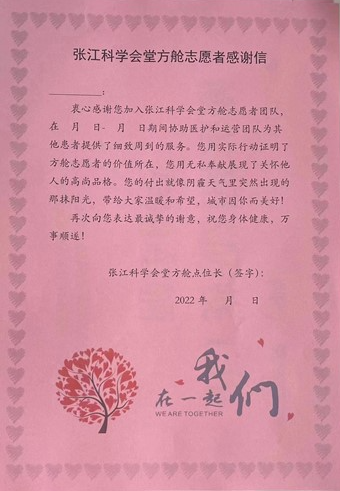 张江科学会堂方舱志愿者感谢信
________：
衷心感谢您加入张江科学会堂方舱志愿者团队，
在 月 日- 月 日期间协助医护和运营团队为其
他患者提供了细致周到的服务。您用实际行动证明了
方舱志愿者的价值所在，您用无私奉献展现了关怀他
人的高尚品格。您的付出就像阴霾天气里突然出现的
那抹阳光，带给大家温暖和希望，城市因你而美好！
再次向您表达最诚挚的谢意，祝您身体健康，万
事顺遂！
张江科学会堂方舱点位长（签字）：
2022 年 月 日
我们
在一起
WE ARE TOGETHER